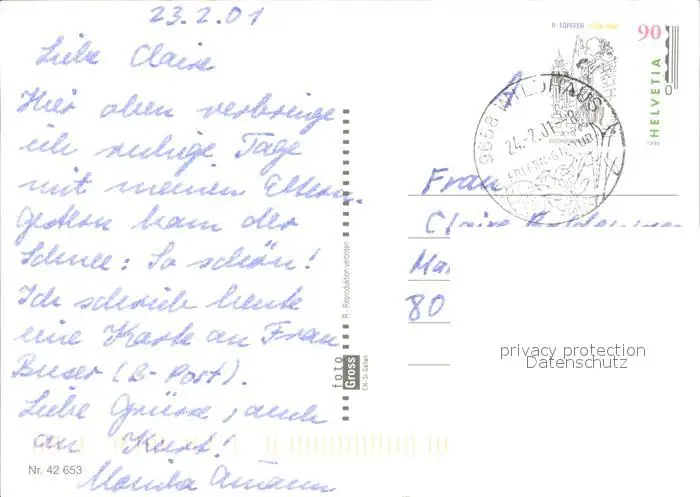 23.2.01
Liebe Claire
Hier oben verbringe
ich ruhige Tage
mit meinen Eltern.
Gestern kam der
Schnee: So schön!
Ich schrieb heute
eine Karte an Frau
Buser (B-Post).
Liebe Grüsse, auch
an Kurt!
Monika Amann
Nr. 42 653
R - Reproduktion verboten
foto
Gross
CH-St. Gallen
R. TÖPFFER 1799-1846
90
HELVETIA
9658 WILDHAUS
24.-2.01-8
Frau
Claire
80
privacy protection
Datenschutz